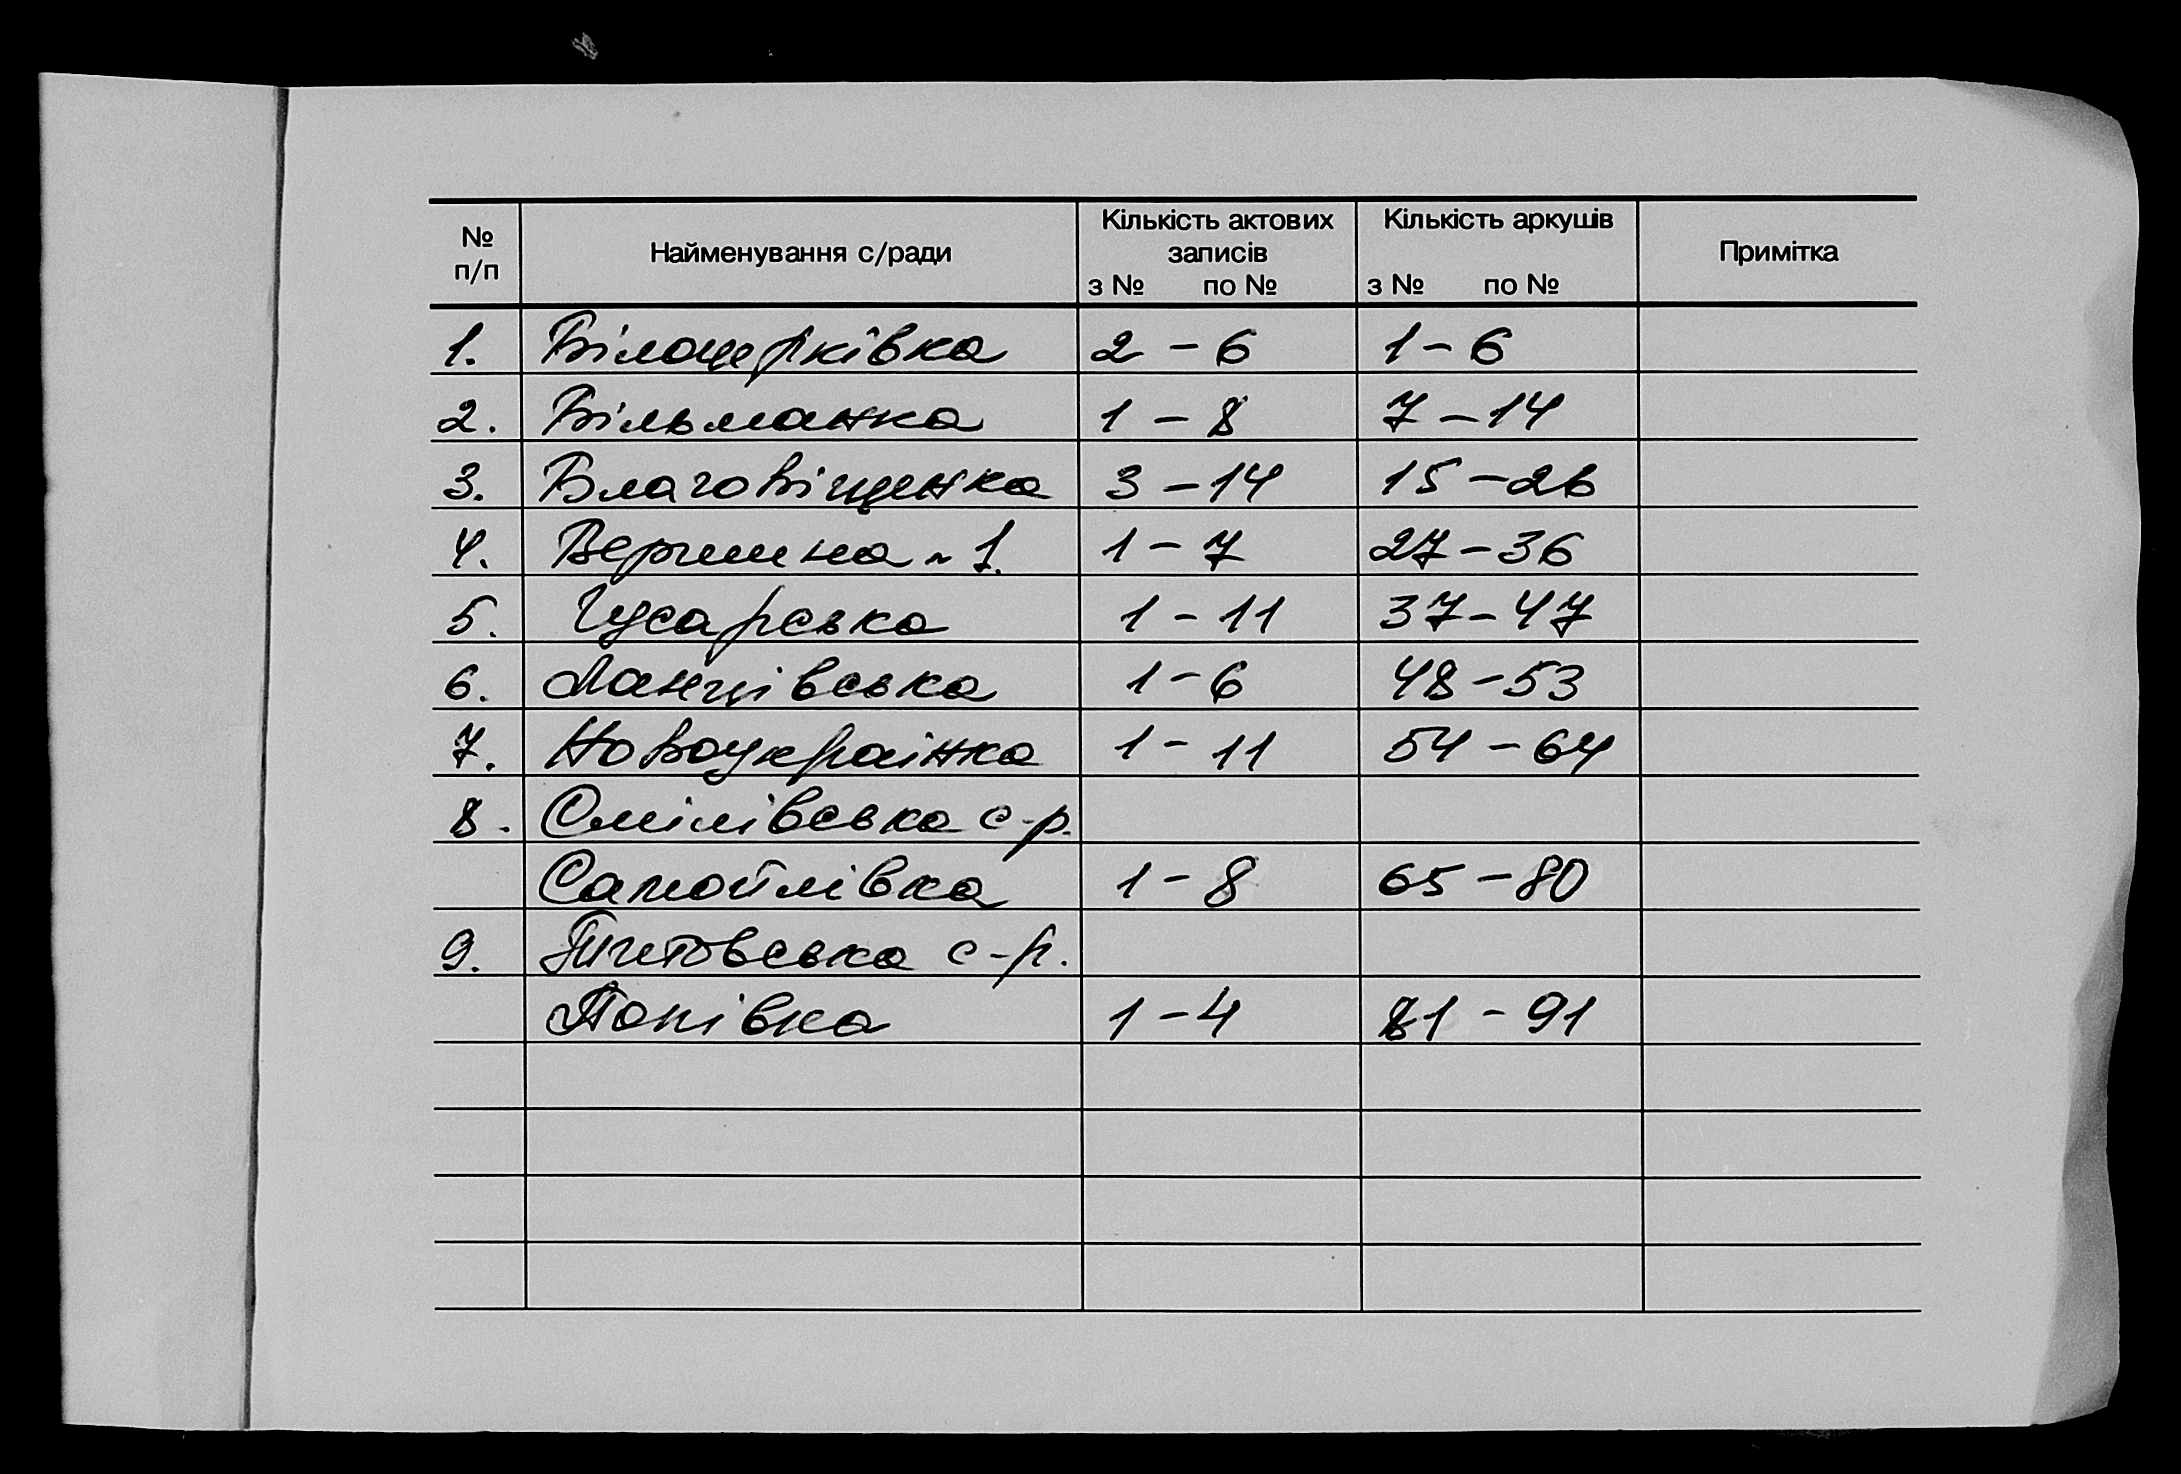 № п/п Найменування с/ради Кількість актових записів з № по № Кількість аркушів з № по № Примітка
1. Білоцерківка 2 - 6 1 - 6
2. Більманка 1 - 8 7 - 14
3. Благовіщенка 3 - 14 15 - 26
4. Вершина ~ 1. 1 - 7 27 - 36
5. Гусарська 1 - 11 37 - 47
6. Ланцівська 1 - 6 48 - 53
7. Новоукраїнка 1 - 11 54 - 64
8. Смілівська с-р.
Самойлівка 1 - 8 65 - 80
9. с-р.
Попівка 1 - 4 81 - 91